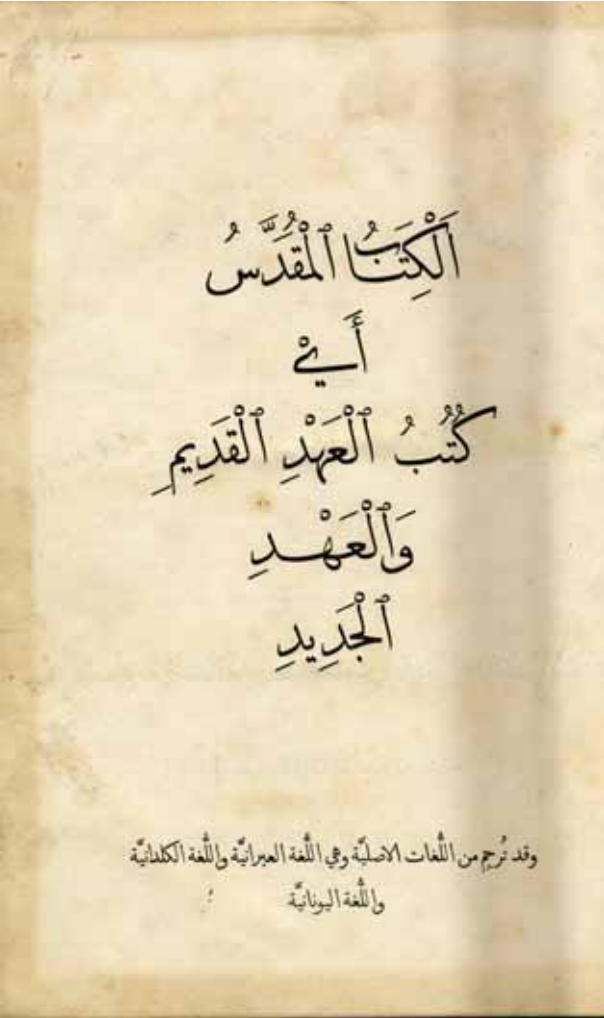 اَلْكِتَابُ ٱلْمُقَدَّسُ
أَيْ
كُتُبُ ٱلْعَهْدِ ٱلْقَدِيمِ
وَٱلْعَهْدِ
ٱلْجَدِيدِ
وقد تُرجِم من اللُّغات الاصليَّة وهي اللُّغة العبرانيَّة واللُّغة الكلدانيَّة
واللُّغة اليونانيَّة